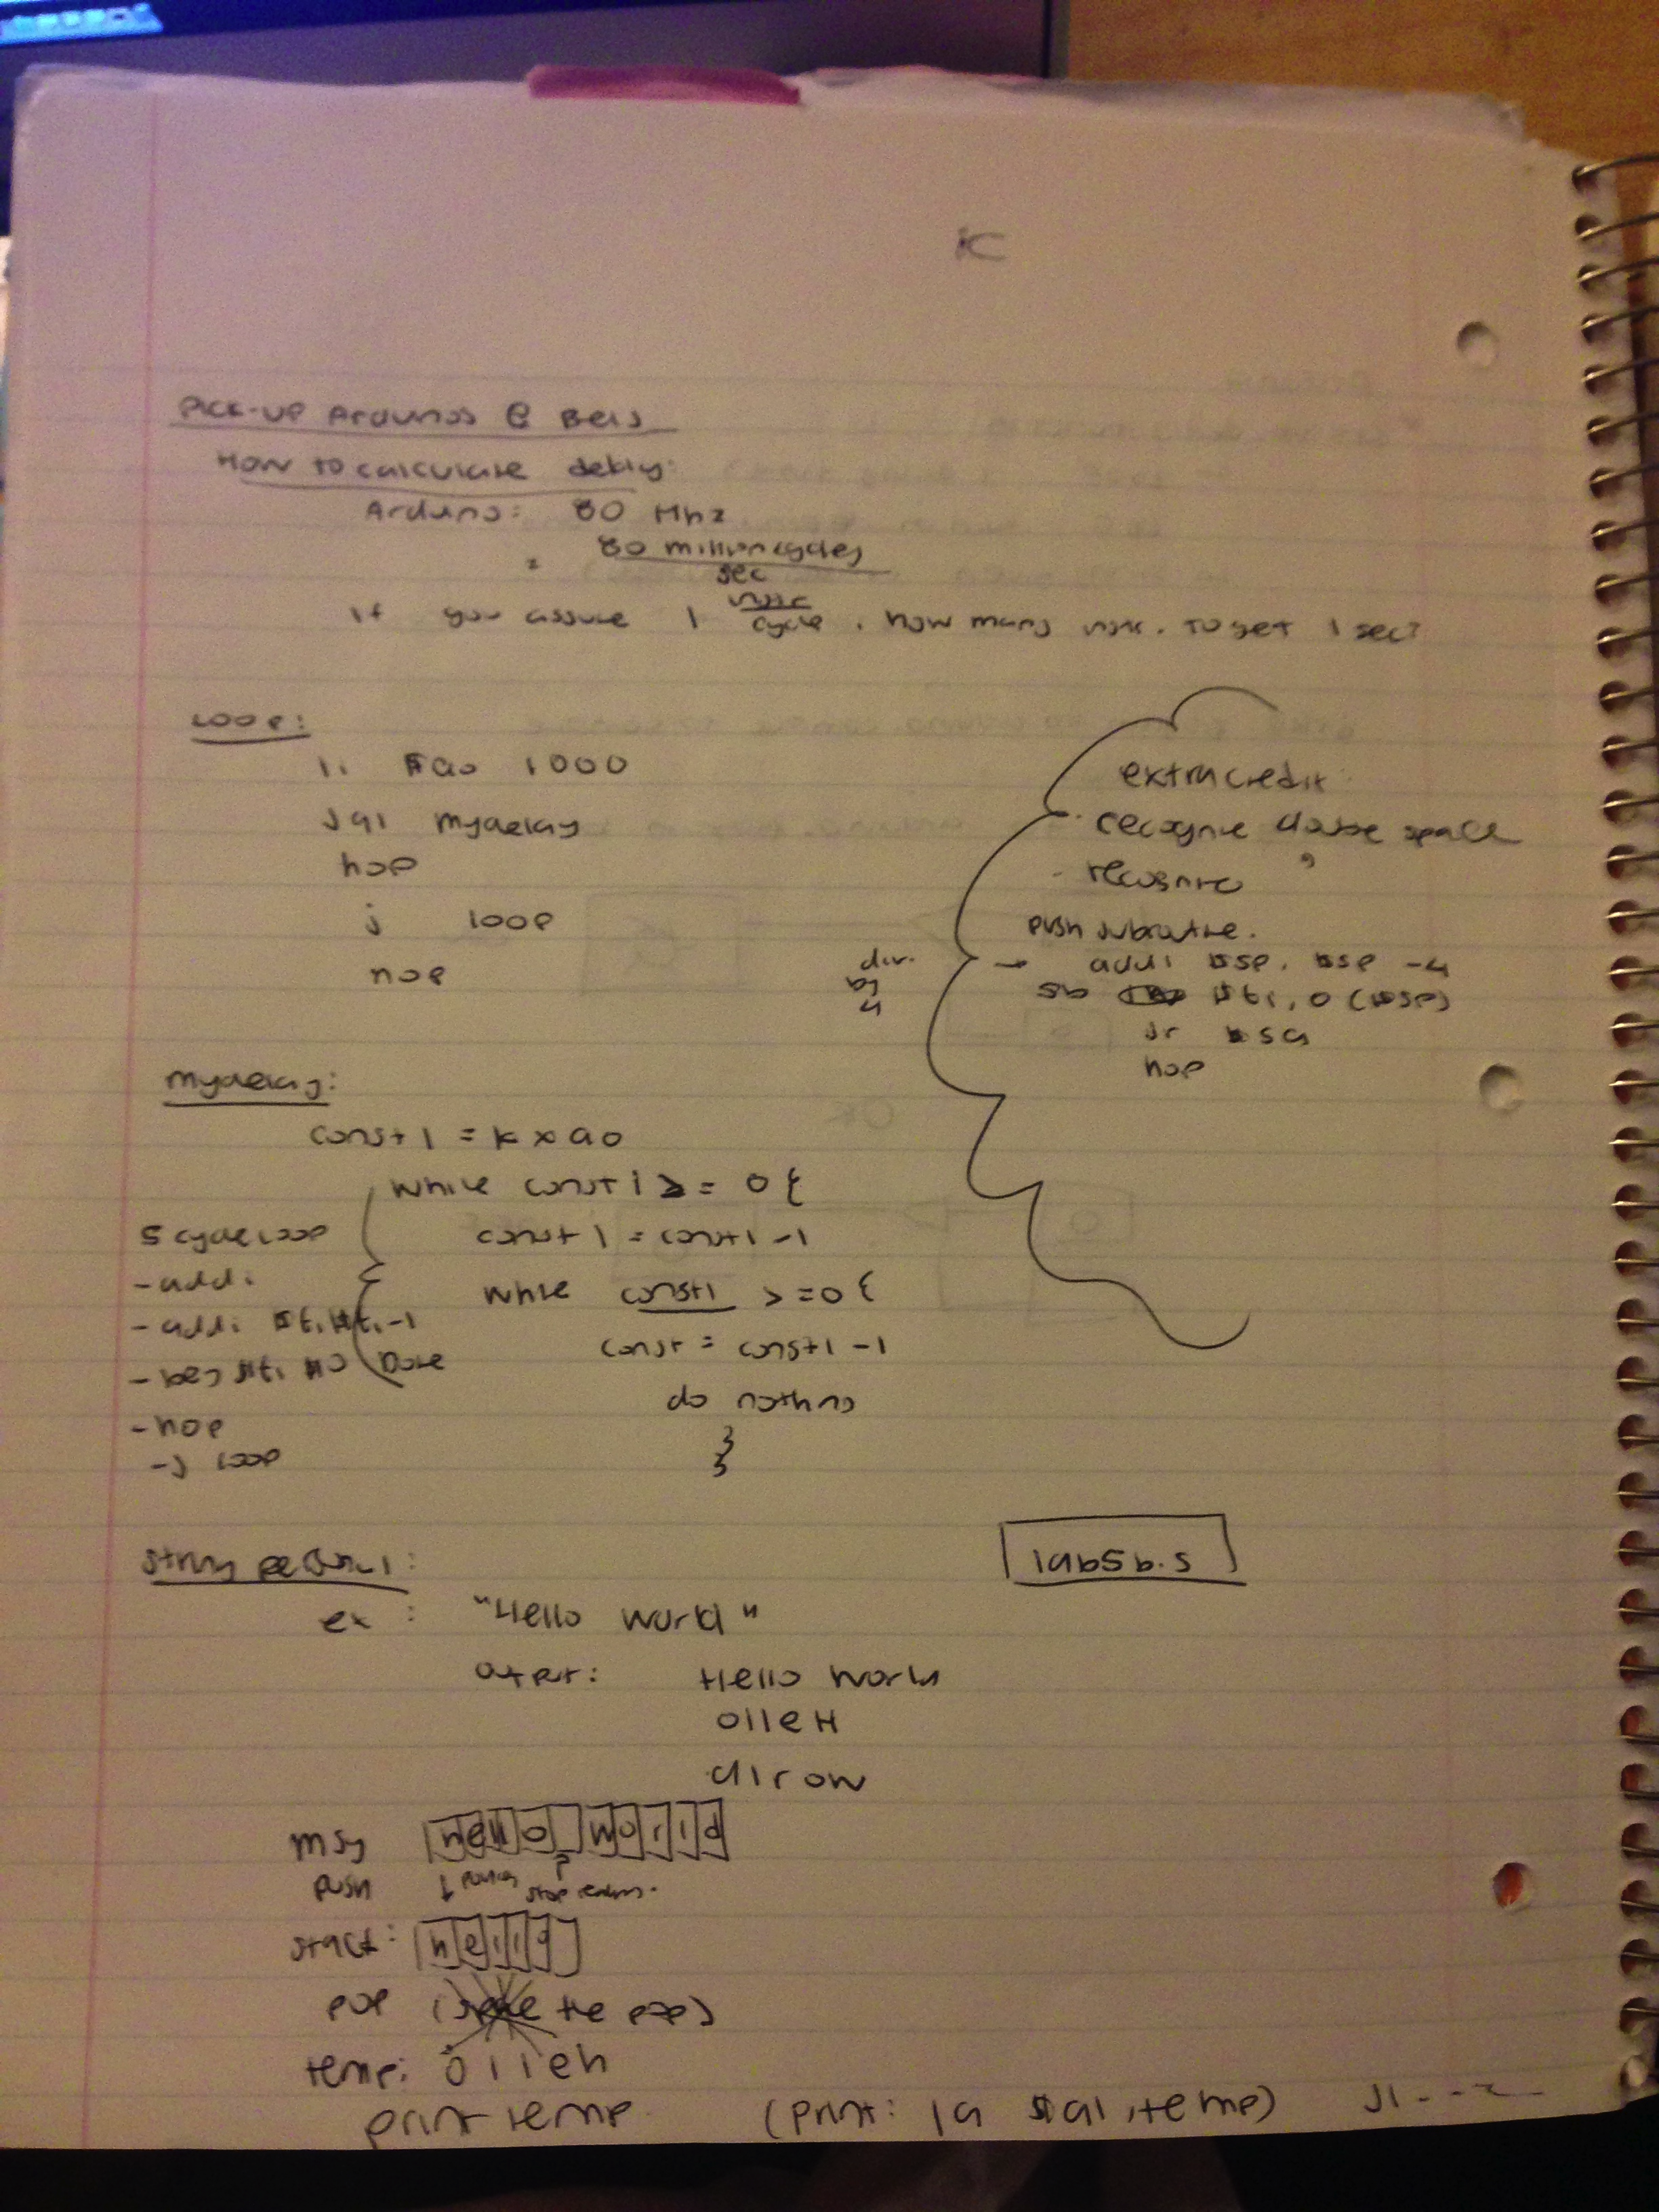 K
PICK-UP Arduinos @ Bels
How to calculate delay:
Arduino: 80 Mhz
= 80 million cycles
sec
If you assume 1 instr
cycle, how many instr. to get 1 sec?
loop:
li $a0 1000
jal mydelay
nop
j loop
nop
extra credit
recognize double space
- recognize ,
push subroutine.
div. by 4 → addi $sp, $sp -4
sb $t1, 0($sp)
jr
nop
mydelay:
const1 = k x a0
while const1 >= 0 {
const1 = const1 -1
while const1 >=0 {
const = const1 -1
do nothing
}
}
5 cycle loop
- addi
- addi $t1 $t1 -1
- beq $t1 $0 Done
- nop
- j loop
lab5b.s
string
ex : "Hello world"
output: Hello World
olleH
dlrow
msg hello world
push ↓ stop
stack: hello
pop ( the pop)
temp: olleh
print temp (print: la $a1, temp)